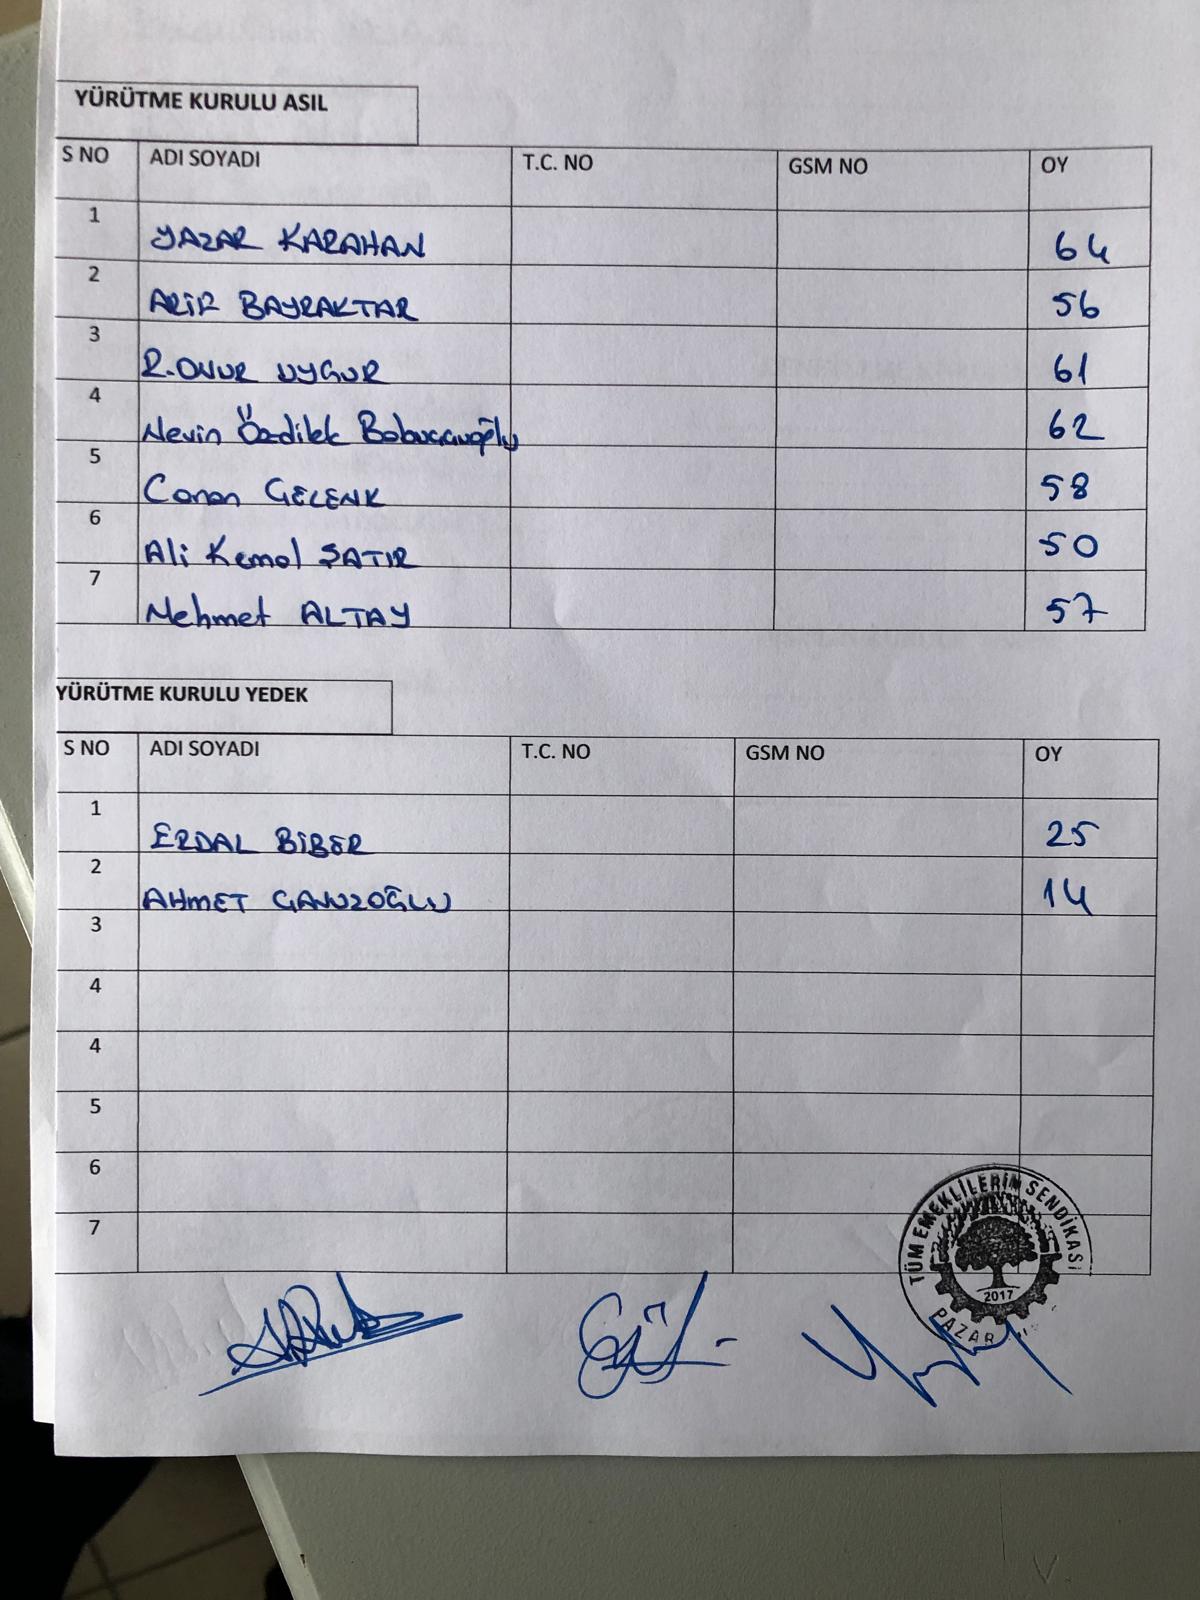 YÜRÜTME KURULU ASIL
S NO ADI SOYADI T.C. NO GSM NO OY
1 YAZAR KARAHAN 64
2 ARİF BAYRAKTAR 56
3 R. ONUR UYGUR 61
4 Nevin Özdilek Babuccuoğlu 62
5 Canan GELENK 58
6 Ali Kemal ŞATIR 50
7 Mehmet ALTAY 57
YÜRÜTME KURULU YEDEK
S NO ADI SOYADI T.C. NO GSM NO OY
1 ERDAL BİBER 25
2 AHMET GAVUZOĞLU 14
3
4
4
5
6
7
TÜM EMEKLİLERİN SENDİKASI
2017
PAZAR